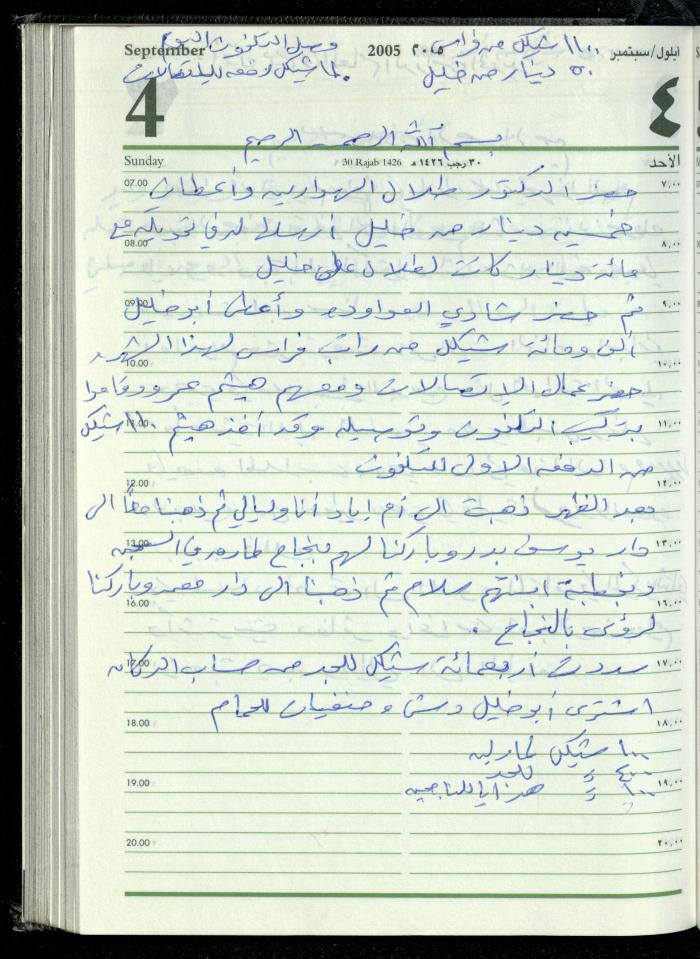 September 2005 ٢٠٠٥ أيلول/سبتمبر
١١٠٠ شيكل من فراس وصل التلفون اليوم
٥٠ دينار من خليل شيكل دفعه للاتصالات
4 ٤
بسم الله الرحمن الرحيم
Sunday 30 Rajab 1426 ٣٠ رجب ١٤٢٦ هـ الأحد
07.00 حضر الدكتور طلال الهوارين وأعطاني ٧,٠٠
خمسين دينار من خليل أرسلها لدفع
08.00 مائة دينار كانت لطلال على خليل ٨,٠٠
09.00 ثم حضر شادي العواوده وأعطى أبو خليل ٩,٠٠
ألف ومائة شيكل من راتب فراس لهذا الشهر
10.00 حضر عمال الاتصالات ومعهم هيثم عمرو وقاموا ١٠,٠٠
11.00 بتركيب التلفون وتوصيله وقد أخذ هيثم شيكل ١١,٠٠
من الدفعه الاولى للتلفون
12.00 ١٢,٠٠
بعد الظهر ذهبت الى أم اياد أنا وليالي ثم ذهبنا معاً الى
13.00 دار يوسف بدر وباركنا لهم بنجاح في السجن ١٣,٠٠
وبخطبة ابنتهم سلام ثم ذهبنا الى دار معمر وباركنا
16.00 لرؤى بالنجاح . ١٦,٠٠
17.00 سددت أربعمائة شيكل للجد من حساب الدكان ١٧,٠٠
اشترى أبو خليل دش و حنفيات للحمام
18.00 ١٨,٠٠
١٠٠ شيكل
٤٠٠ = للجد
19.00 ١٠٠ = هدايا للناجحين ١٩,٠٠
20.00 ٢٠,٠٠